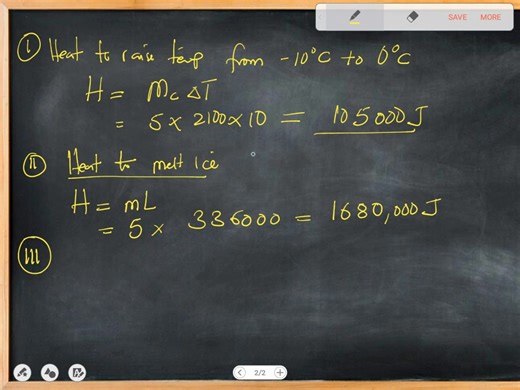 SAVE MORE
I Heat to raise temp from -10°C to 0°C
H = Mc ΔT
= 5 × 2100 × 10 = 105000J
II Heat to melt ice
H = mL
= 5 × 336000 = 1680,000J
III
2/2